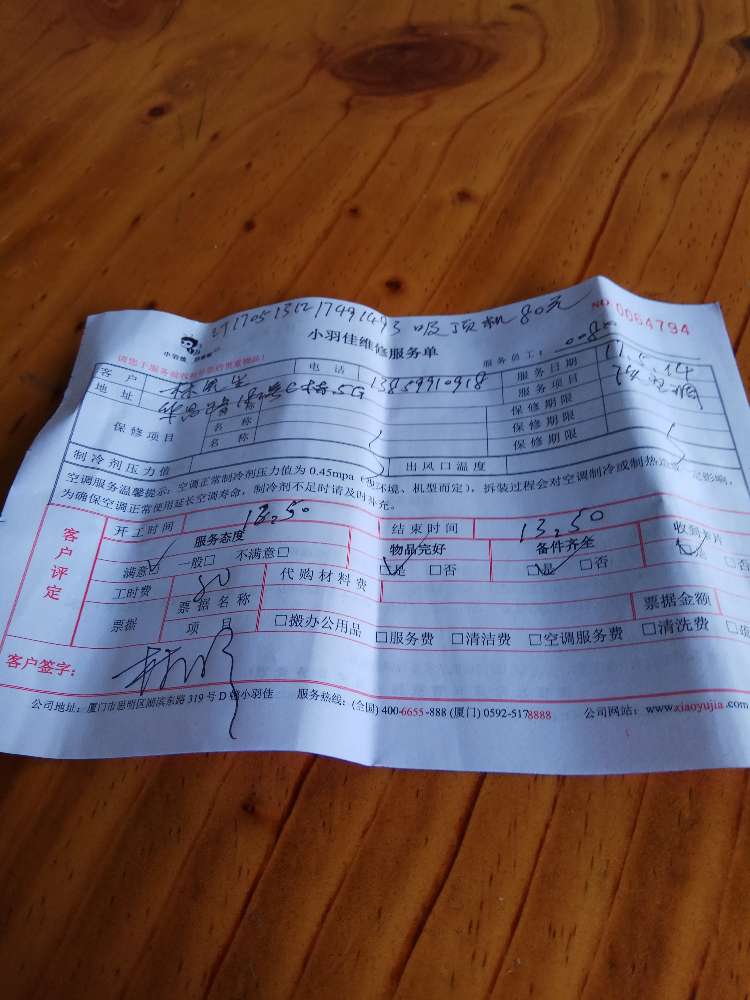 171705131217491493 吸顶机80元
NO:0064794
小羽佳
小羽佳维修服务单
服务员工: 008
请您于服务前收好你的贵重物品!
客户 林先生 电话 13859910918 服务日期 17.5.14
地址 5G 服务项目
保修项目 名称 保修期限
名称 保修期限
名称 保修期限
制冷剂压力值 出风口温度
空调服务温馨提示: 空调正常制冷剂压力值为 0.45mpa (视环境、机型而定), 拆装过程会对空调制冷或制热造成一定影响,
为确保空调正常使用延长空调寿命, 制冷剂不足时请及时补充。
客户评定
开工时间 13.50 结束时间 13.50
服务态度 物品完好 备件齐全 收到卡片
满意□ 一般□ 不满意□ □是 □否 □是 □否 □是 □否
工时费 80 代购材料费
票据 票据名称 票据金额
项目 □搬办公用品 □服务费 □清洁费 □空调服务费 □清洗费
客户签字:
公司地址: 厦门市思明区湖滨东路 319 号 D 幢小羽佳 服务热线: (全国) 400-6655-888 (厦门) 0592-5178888 公司网站: www.xiaoyujia.com